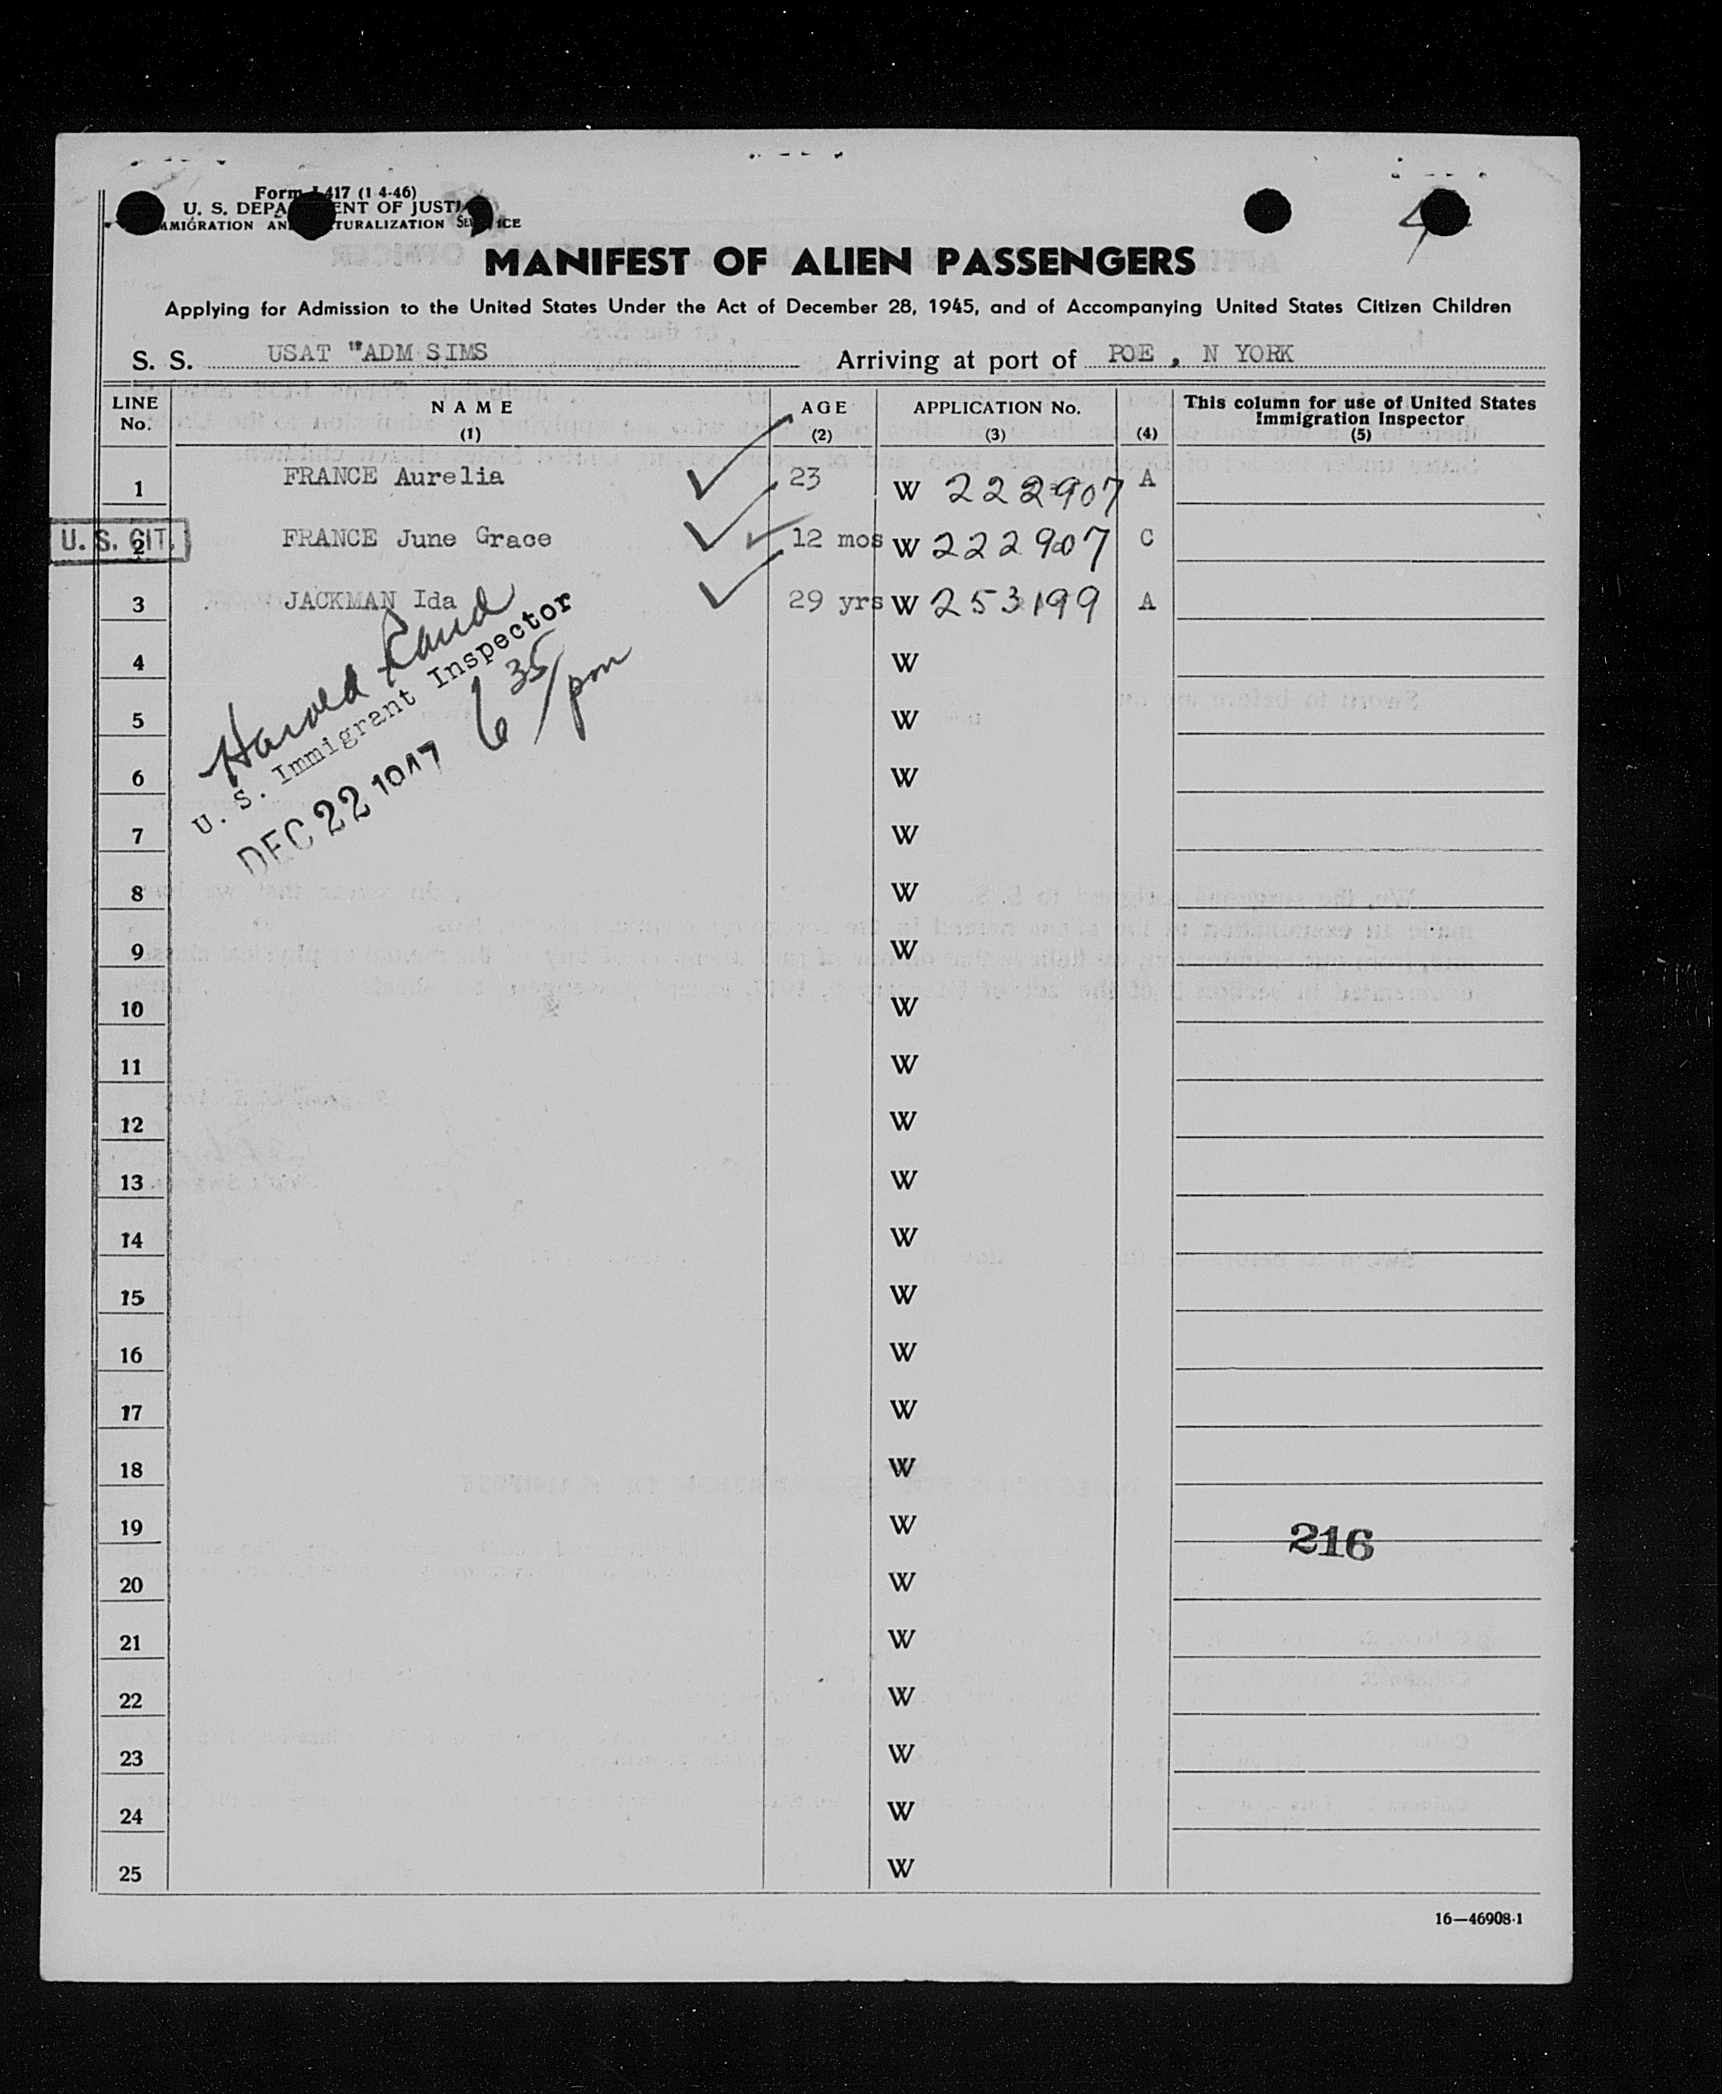 Form I-417 (1-4-46)
U. S. DEPARTMENT OF JUSTICE
IMMIGRATION AND NATURALIZATION SERVICE
4
MANIFEST OF ALIEN PASSENGERS
Applying for Admission to the United States Under the Act of December 28, 1945, and of Accompanying United States Citizen Children
S. S. USAT "ADM SIMS Arriving at port of POE , N YORK
LINE No. NAME (1) AGE (2) APPLICATION No. (3) (4) This column for use of United States Immigration Inspector (5)
1 FRANCE Aurelia 23 W 222907 A
U. S. CIT. 2 FRANCE June Grace 12 mos W 222907 C
3 JACKMAN Ida 29 yrs W 253199 A
Harold
U. S. Immigrant Inspector
DEC 22 1947 6 35/pm
4 W
5 W
6 W
7 W
8 W
9 W
10 W
11 W
12 W
13 W
14 W
15 W
16 W
17 W
18 W
19 W 216
20 W
21 W
22 W
23 W
24 W
25 W
16—46908-1